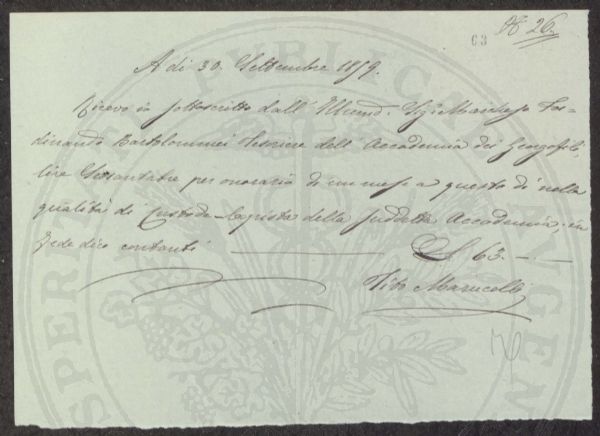 63
N° 26.
A di 30. Settembre 1859.
Ricevo io sottoscritto dall' Illmo. Sigr. Marchese Fer-
dinando Bartolommei Tesoriere dell' Accademia dei Georgofili,
lire Sessantatre per onorario di un mese a questo dì nella
qualità di Custode Copista della suddetta Accademia, in
fede dico contanti ——— £ 63. — —
Tito Marucelli
PUBLICAE
PROSPERITATI
AUGENDAE